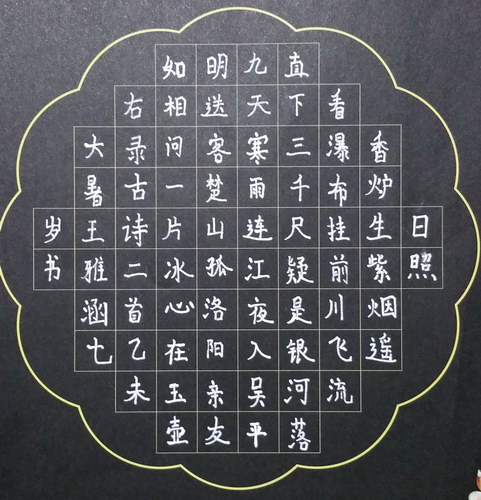 日照
香炉生紫烟遥
看瀑布挂前川飞流
直下三千尺疑是银河落
九天寒雨连江夜入吴平
明送客楚山孤洛阳亲友
如相问一片冰心在玉壶
右录古诗二首乙未
大暑王雅涵七
岁书